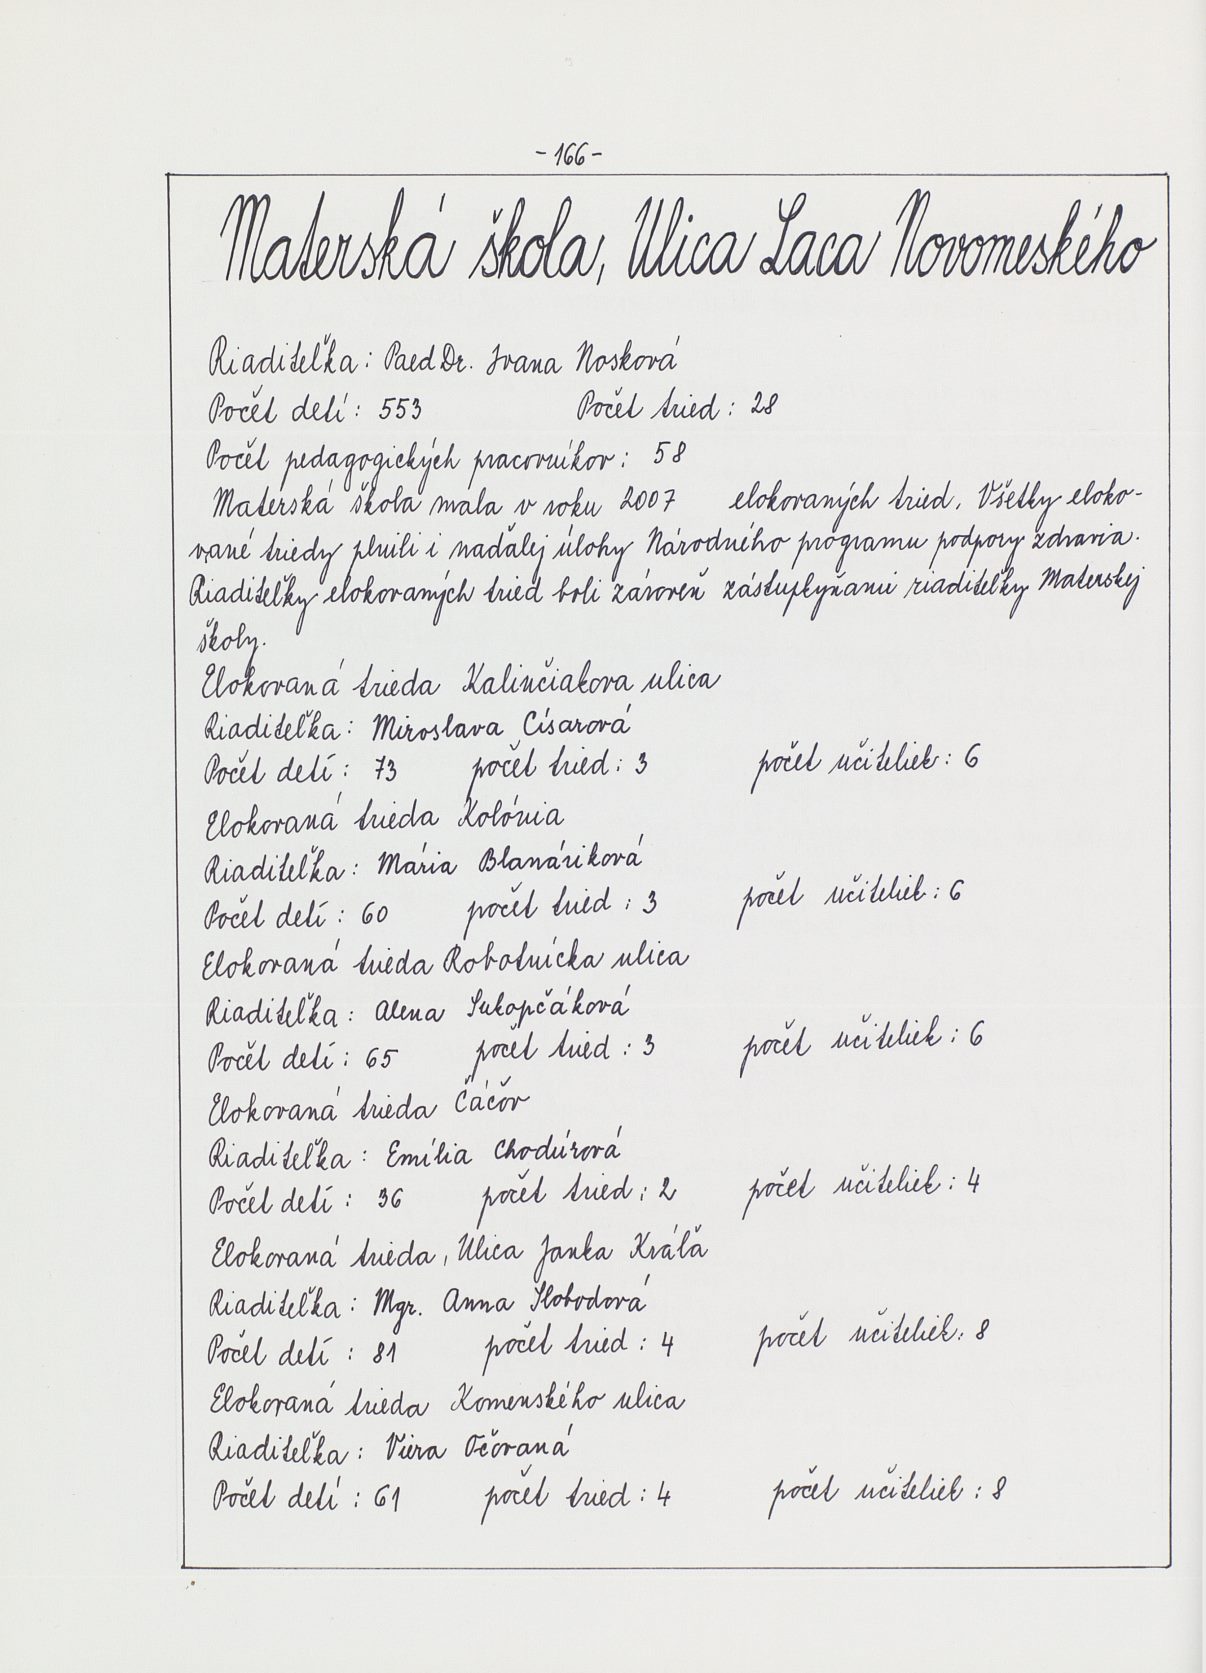 - 166 -
Materská škola, Ulica Laca Novomeského
Riaditeľka : PaedDr. Ivana Nosková
Počet detí : 553 Počet tried : 28
Počet pedagogických pracovníkov : 58
Materská škola mala v roku 2007 elokovaných tried. Všetky eloko-
vané triedy plnili i naďalej úlohy Národného programu podpory zdravia.
Riaditeľky elokovaných tried boli zároveň zástupkyňami riaditeľky Materskej
školy.
Elokovaná trieda Kalinčiakova ulica
Riaditeľka : Miroslava Císarová
Počet detí : 73 počet tried : 3 počet učiteliek : 6
Elokovaná trieda Kolónia
Riaditeľka : Mária Blanáriková
Počet detí : 60 počet tried : 3 počet učiteliek : 6
Elokovaná trieda Robotnícka ulica
Riaditeľka : Alena Sukopčáková
Počet detí : 65 počet tried : 3 počet učiteliek : 6
Elokovaná trieda Čáčov
Riaditeľka : Emília Chodúrová
Počet detí : 36 počet tried : 2 počet učiteliek : 4
Elokovaná trieda, Ulica Janka Kráľa
Riaditeľka : Mgr. Anna Slobodová
Počet detí : 81 počet tried : 4 počet učiteliek : 8
Elokovaná trieda Komenského ulica
Riaditeľka : Viera Očovaná
Počet detí : 61 počet tried : 4 počet učiteliek : 8